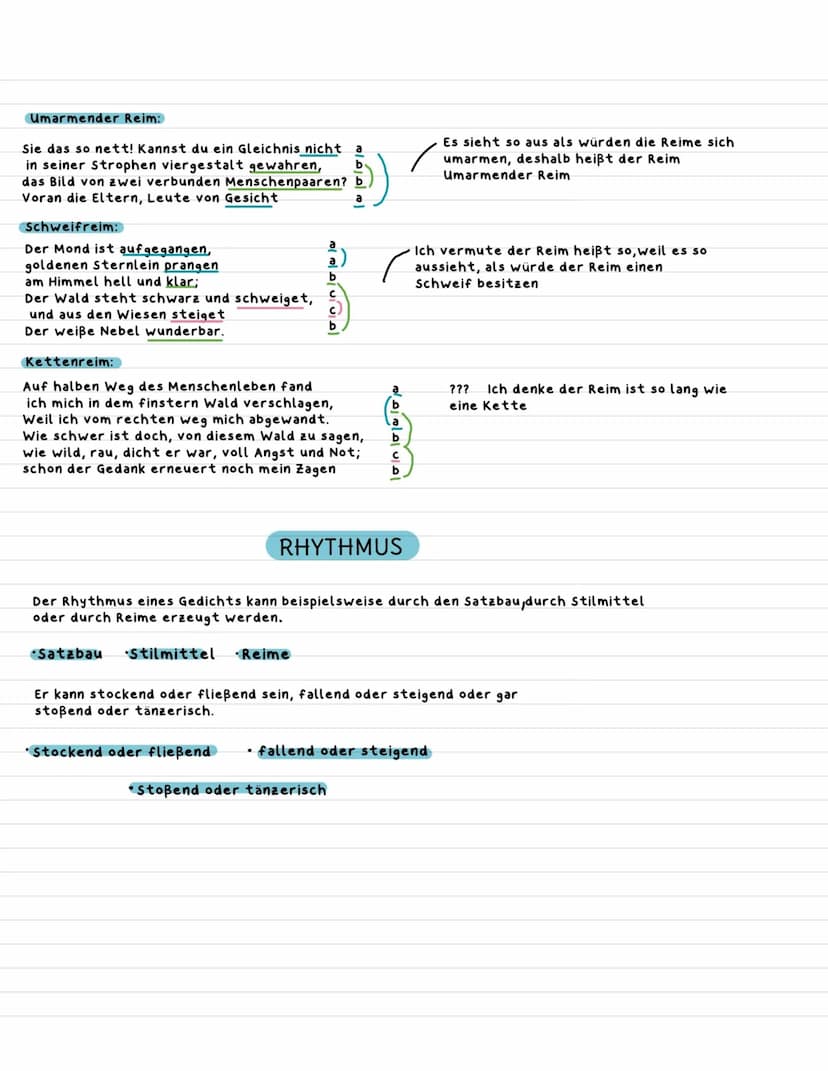 Umarmender Reim:
Sie das so nett! Kannst du ein Gleichnis nicht a
in seiner Strophen viergestalt gewahren, b
das Bild von zwei verbunden Menschenpaaren? b
Voran die Eltern, Leute von Gesicht a
Es sieht so aus als würden die Reime sich
umarmen, deshalb heißt der Reim
Umarmender Reim
Schweifreim:
Der Mond ist aufgegangen, a
goldenen Sternlein prangen a
am Himmel hell und klar; b
Der Wald steht schwarz und schweiget, c
und aus den Wiesen steiget c
Der weiße Nebel wunderbar. b
Ich vermute der Reim heißt so,weil es so
aussieht, als würde der Reim einen
Schweif besitzen
Kettenreim:
Auf halben Weg des Menschenleben fand a
ich mich in dem finstern Wald verschlagen, b
Weil ich vom rechten weg mich abgewandt. a
Wie schwer ist doch, von diesem Wald zu sagen, b
wie wild, rau, dicht er war, voll Angst und Not; c
schon der Gedank erneuert noch mein Zagen b
??? Ich denke der Reim ist so lang wie
eine Kette
RHYTHMUS
Der Rhythmus eines Gedichts kann beispielsweise durch den Satzbau,durch Stilmittel
oder durch Reime erzeugt werden.
·Satzbau ·Stilmittel ·Reime
Er kann stockend oder fließend sein, fallend oder steigend oder gar
stoßend oder tänzerisch.
·Stockend oder fließend · fallend oder steigend
·Stoßend oder tänzerisch